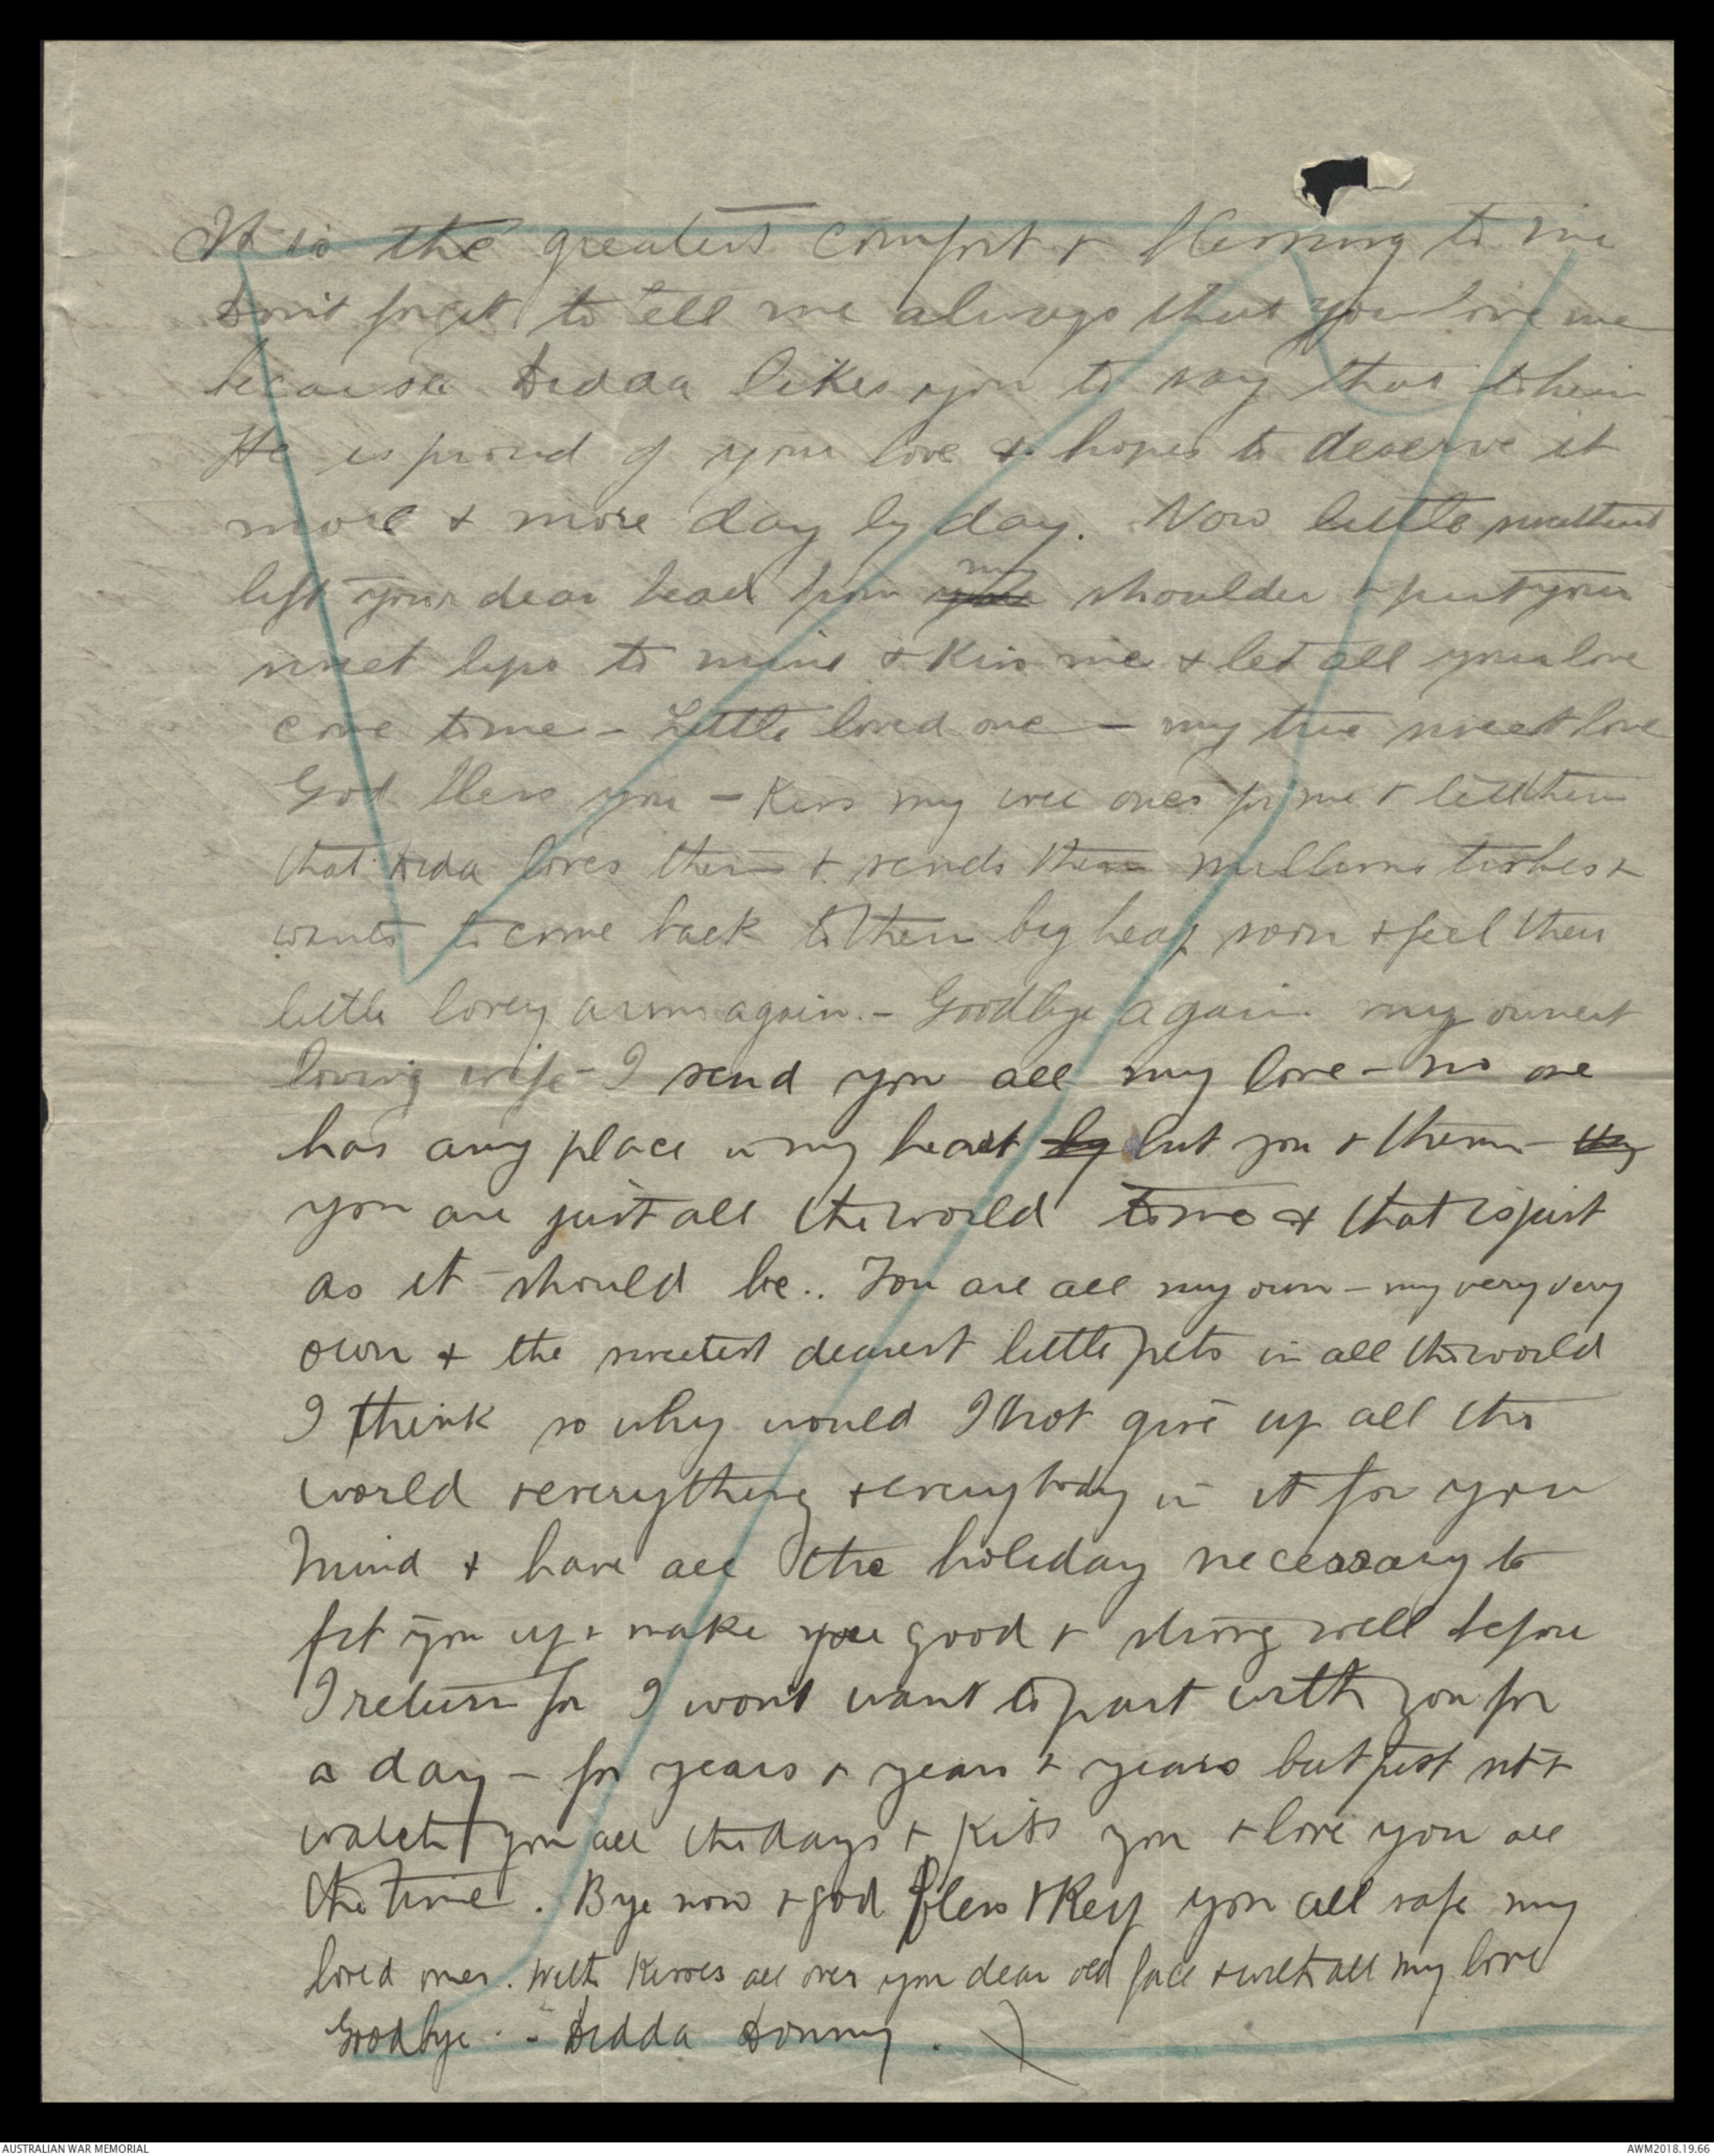 It is the greatest comfort & blessing to me
Don't forget to tell me always that you love me
because Didda likes you to say that to him
He is proud of your love & hopes to deserve it
more & more day by day. Now little sweetheart
lift your dear head from my shoulder & put your
sweet lips to mine & kiss me & let all your love
come to me - Little loved one - my true sweet love
God bless you - Kiss my wee ones for me & tell them
that Dida loves them & sends them millions &
wants to come back to them big heap soon & feel their
little lovey arms again. - Goodbye again my ownest
loving wife - I send you all my love - no one
has any place in my heart but you & them -
you are just all the world to me & that is just
as it should be.. You are all my own - my very very
own & the sweetest dearest little pets in all the world
I think so why would I not give up all this
world & everything & everybody in it for you
Mind & have all the holiday necessary to
fit you up & make you good & strong well before
I return for I won't want to part with you for
a day - for years & years & years but just sit &
watch you all the days & kiss you & love you all
the time. Bye now & god bless & keep you all safe my
loved ones. With kisses all over your dear old face & with all my love
Goodbye - Didda Honny. )
AUSTRALIAN WAR MEMORIAL
AWM2018.19.66